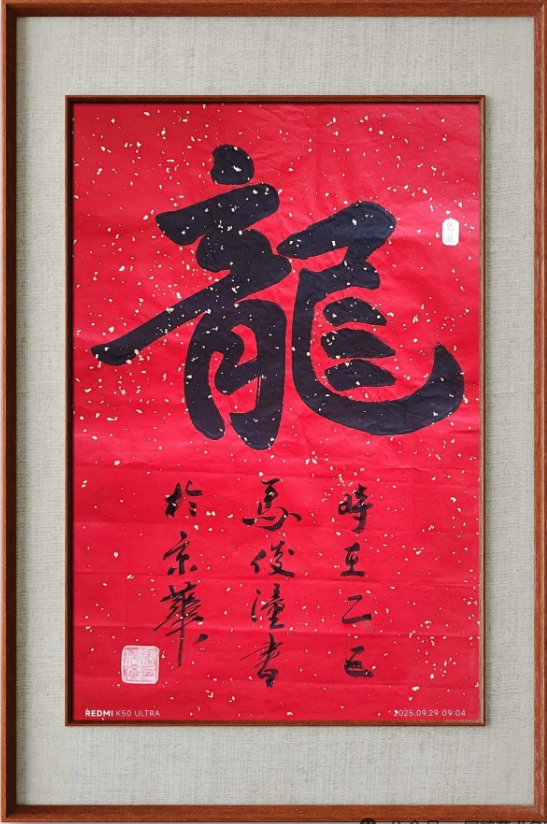 龍
時在乙巳
馬俊潼書
於京華
REDMI K50 ULTRA
2025.09.29 09:04